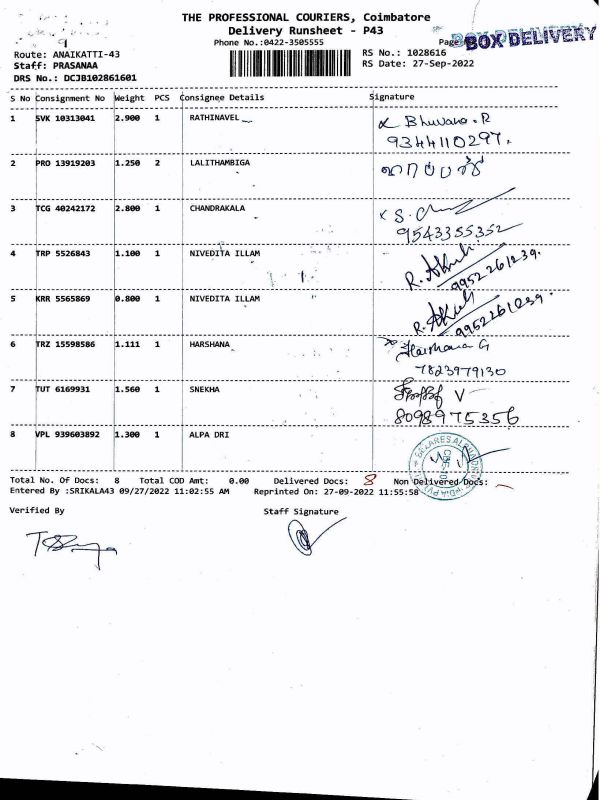 THE PROFESSIONAL COURIERS, Coimbatore
Delivery Runsheet - P43
Phone No.:0422-3505555
Page
BOX DELIVERY
Route: ANAIKATTI-43
Staff: PRASANAA
DRS No.: DCJB102861601
RS No.: 1028616
RS Date: 27-Sep-2022
S No Consignment No Weight PCS Consignee Details Signature
1 SVK 10313041 2.900 1 RATHINAVEL Bhuvana.R
9344110297.
2 PRO 13919203 1.250 2 LALITHAMBIGA
3 TCG 40242172 2.800 1 CHANDRAKALA
9543355352
4 TRP 5526843 1.100 1 NIVEDITA ILLAM
9952261239.
5 KRR 5565869 0.800 1 NIVEDITA ILLAM
9952261239.
6 TRZ 15598586 1.111 1 HARSHANA Harshana G
7823979130
7 TUT 6169931 1.560 1 SNEKHA V
8098975356
8 VPL 939603892 1.300 1 ALPA DRI
Total No. Of Docs: 8 Total COD Amt: 0.00 Delivered Docs: 8 Non Delivered Docs:
Entered By :SRIKALA43 09/27/2022 11:02:55 AM Reprinted On: 27-09-2022 11:55:58
Verified By Staff Signature